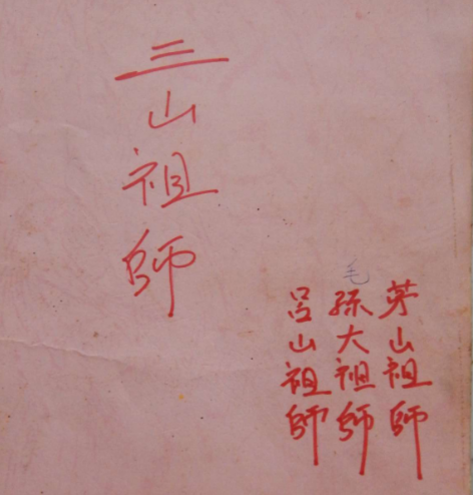 三山祖師
茅山祖師
毛
孫大祖師
呂山祖師